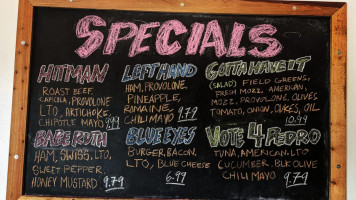 SPECIALS
HITMAN
ROAST BEEF,
CAPICOLA, PROVOLONE
LTO, ARTICHOKE,
CHIPOTLE MAYO 9.99
LEFT HAND
HAM, PROVOLONE,
PINEAPPLE,
ROMAINE,
CHILI MAYO 9.79
GOTTA HAVE IT
(SALAD) FIELD GREENS,
FRESH MOZZ, AMERICAN,
MOZZ, PROVOLONE, OLIVES
TOMATO, ONION, CUKES, OIL
10.99
BABE RUTH
HAM, SWISS, LTO,
SWEET PEPPER,
HONEY MUSTARD 9.79
BLUE EYES
BURGER, BACON,
LTO, BLUE CHEESE
6.99
VOTE 4 PEDRO
TUNA, AMERICAN, LTO
CUCUMBER, BLK OLIVE
CHILI MAYO 9.79